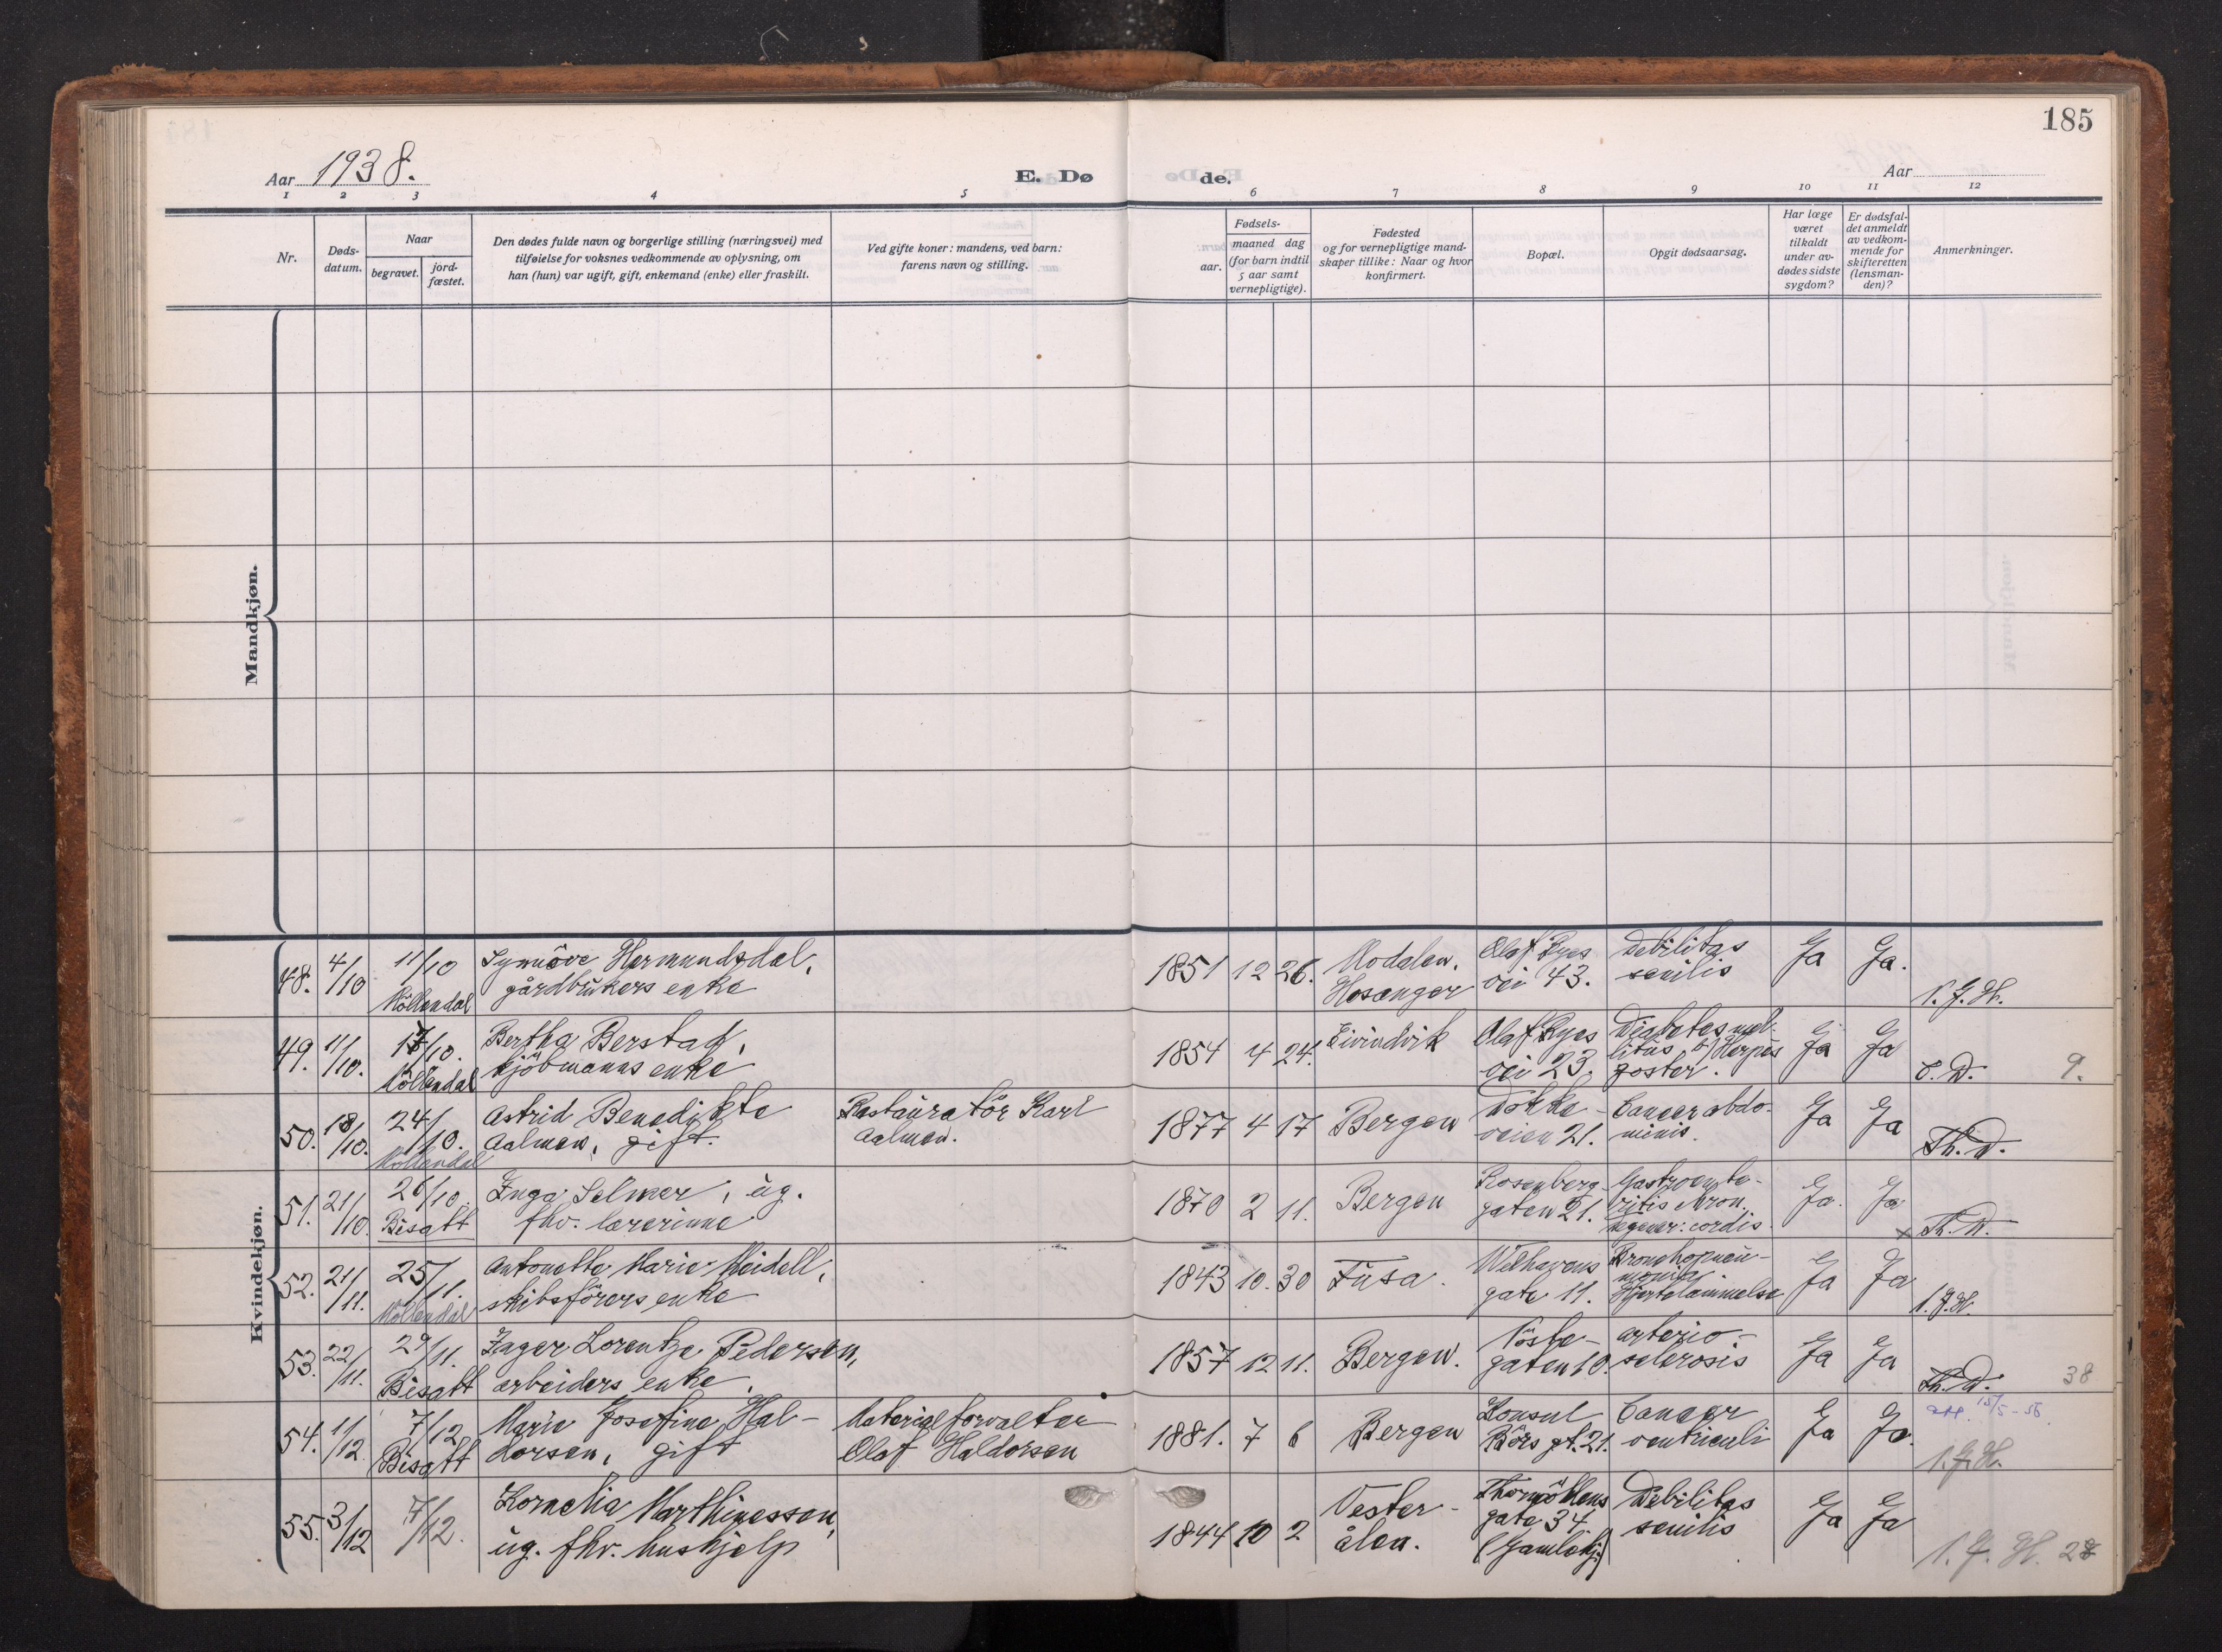 185
Aar 1938.
E. Dø
de.
Aar
1 2 3 4 5 6 7 8 9 10 11 12
Nr.
Døds-
datum.
Naar
begravet.
jord-
fæstet.
Den dødes fulde navn og borgerlige stilling (næringsvei) med
tilføielse for voksnes vedkommende av oplysning, om
han (hun) var ugift, gift, enkemand (enke) eller fraskilt.
Ved gifte koner: mandens, ved barn:
farens navn og stilling.
aar.
Fødsels-
maaned dag
(for barn indtil
5 aar samt
vernepligtige).
Fødested
og for vernepligtige mand-
skaper tillike: Naar og hvor
konfirmert.
Bopæl.
Opgit dødsaarsag.
Har læge
været
tilkaldt
under av-
dødes sidste
sygdom?
Er dødsfal-
det anmeldt
av vedkom-
mende for
skifteretten
(lensman-
den)?
Anmerkninger.
Mandkjøn.
Kvindekjøn.
48. 4/10 11/10 Synnöve Hermundsdal, 1851 12 26. Modalen, Olaf Ryes Debilitas Ja Ja.
Möllendal gårdbrukers enke Hosanger vei 43. senilis
49. 11/10. 17/10. Bertha Berstad, 1854 4 24. Eivindvik Olaf Ryes Diabetes mel- Ja Ja
Möllendal kjöbmanns enke vei 23. litus Herpes O. D. 9.
zoster.
50. 18/10. 24/10. Astrid Benedikte Restauratör Karl 1877 4 17 Bergen Dokke- Cancer abdo- Ja Ja
Möllendal Aalmen, gift. Aalmen. veien 21. minis. Th. D.
51. 21/10. 26/10. Inga Selmer, ug. 1870 2 11. Bergen Rosenberg- Gastroente- Ja. Ja
Bisatt fhv. lærerinne gaten 21. ritis kron. x Th. D.
Degener: cordis.
52. 21/11. 25/11. Antonette Marie Meidell, 1843 10. 30 Fusa. Welhavens Bronchopneu- Ja Ja
Möllendal skibsförers enke gate 11. monia
Hjertelammelse
53. 22/11. 29/11. Inger Lorentze Pedersen, 1857 12 11. Bergen. Nöste- Arterio- Ja Ja
Bisatt arbeiders enke. gaten 10. sclerosis Th. D. 38
54. 1/12. 7/12 Marie Josefine Hal- Materialforvalter 1881. 7 6 Bergen Konsul Cancer Ja Ja. att. 15/5-56.
Bisatt dorsen, gift Olaf Haldorsen Börs gt. 21. ventriculi
55. 3/12 7/12. Kornelia Marthinessen, 1844 10 2 Vester- Thormöhlens Debilitas Ja Ja
ug. fhv. hushjelp ålen. gate 34. senilis
(Gamlehj.) 28